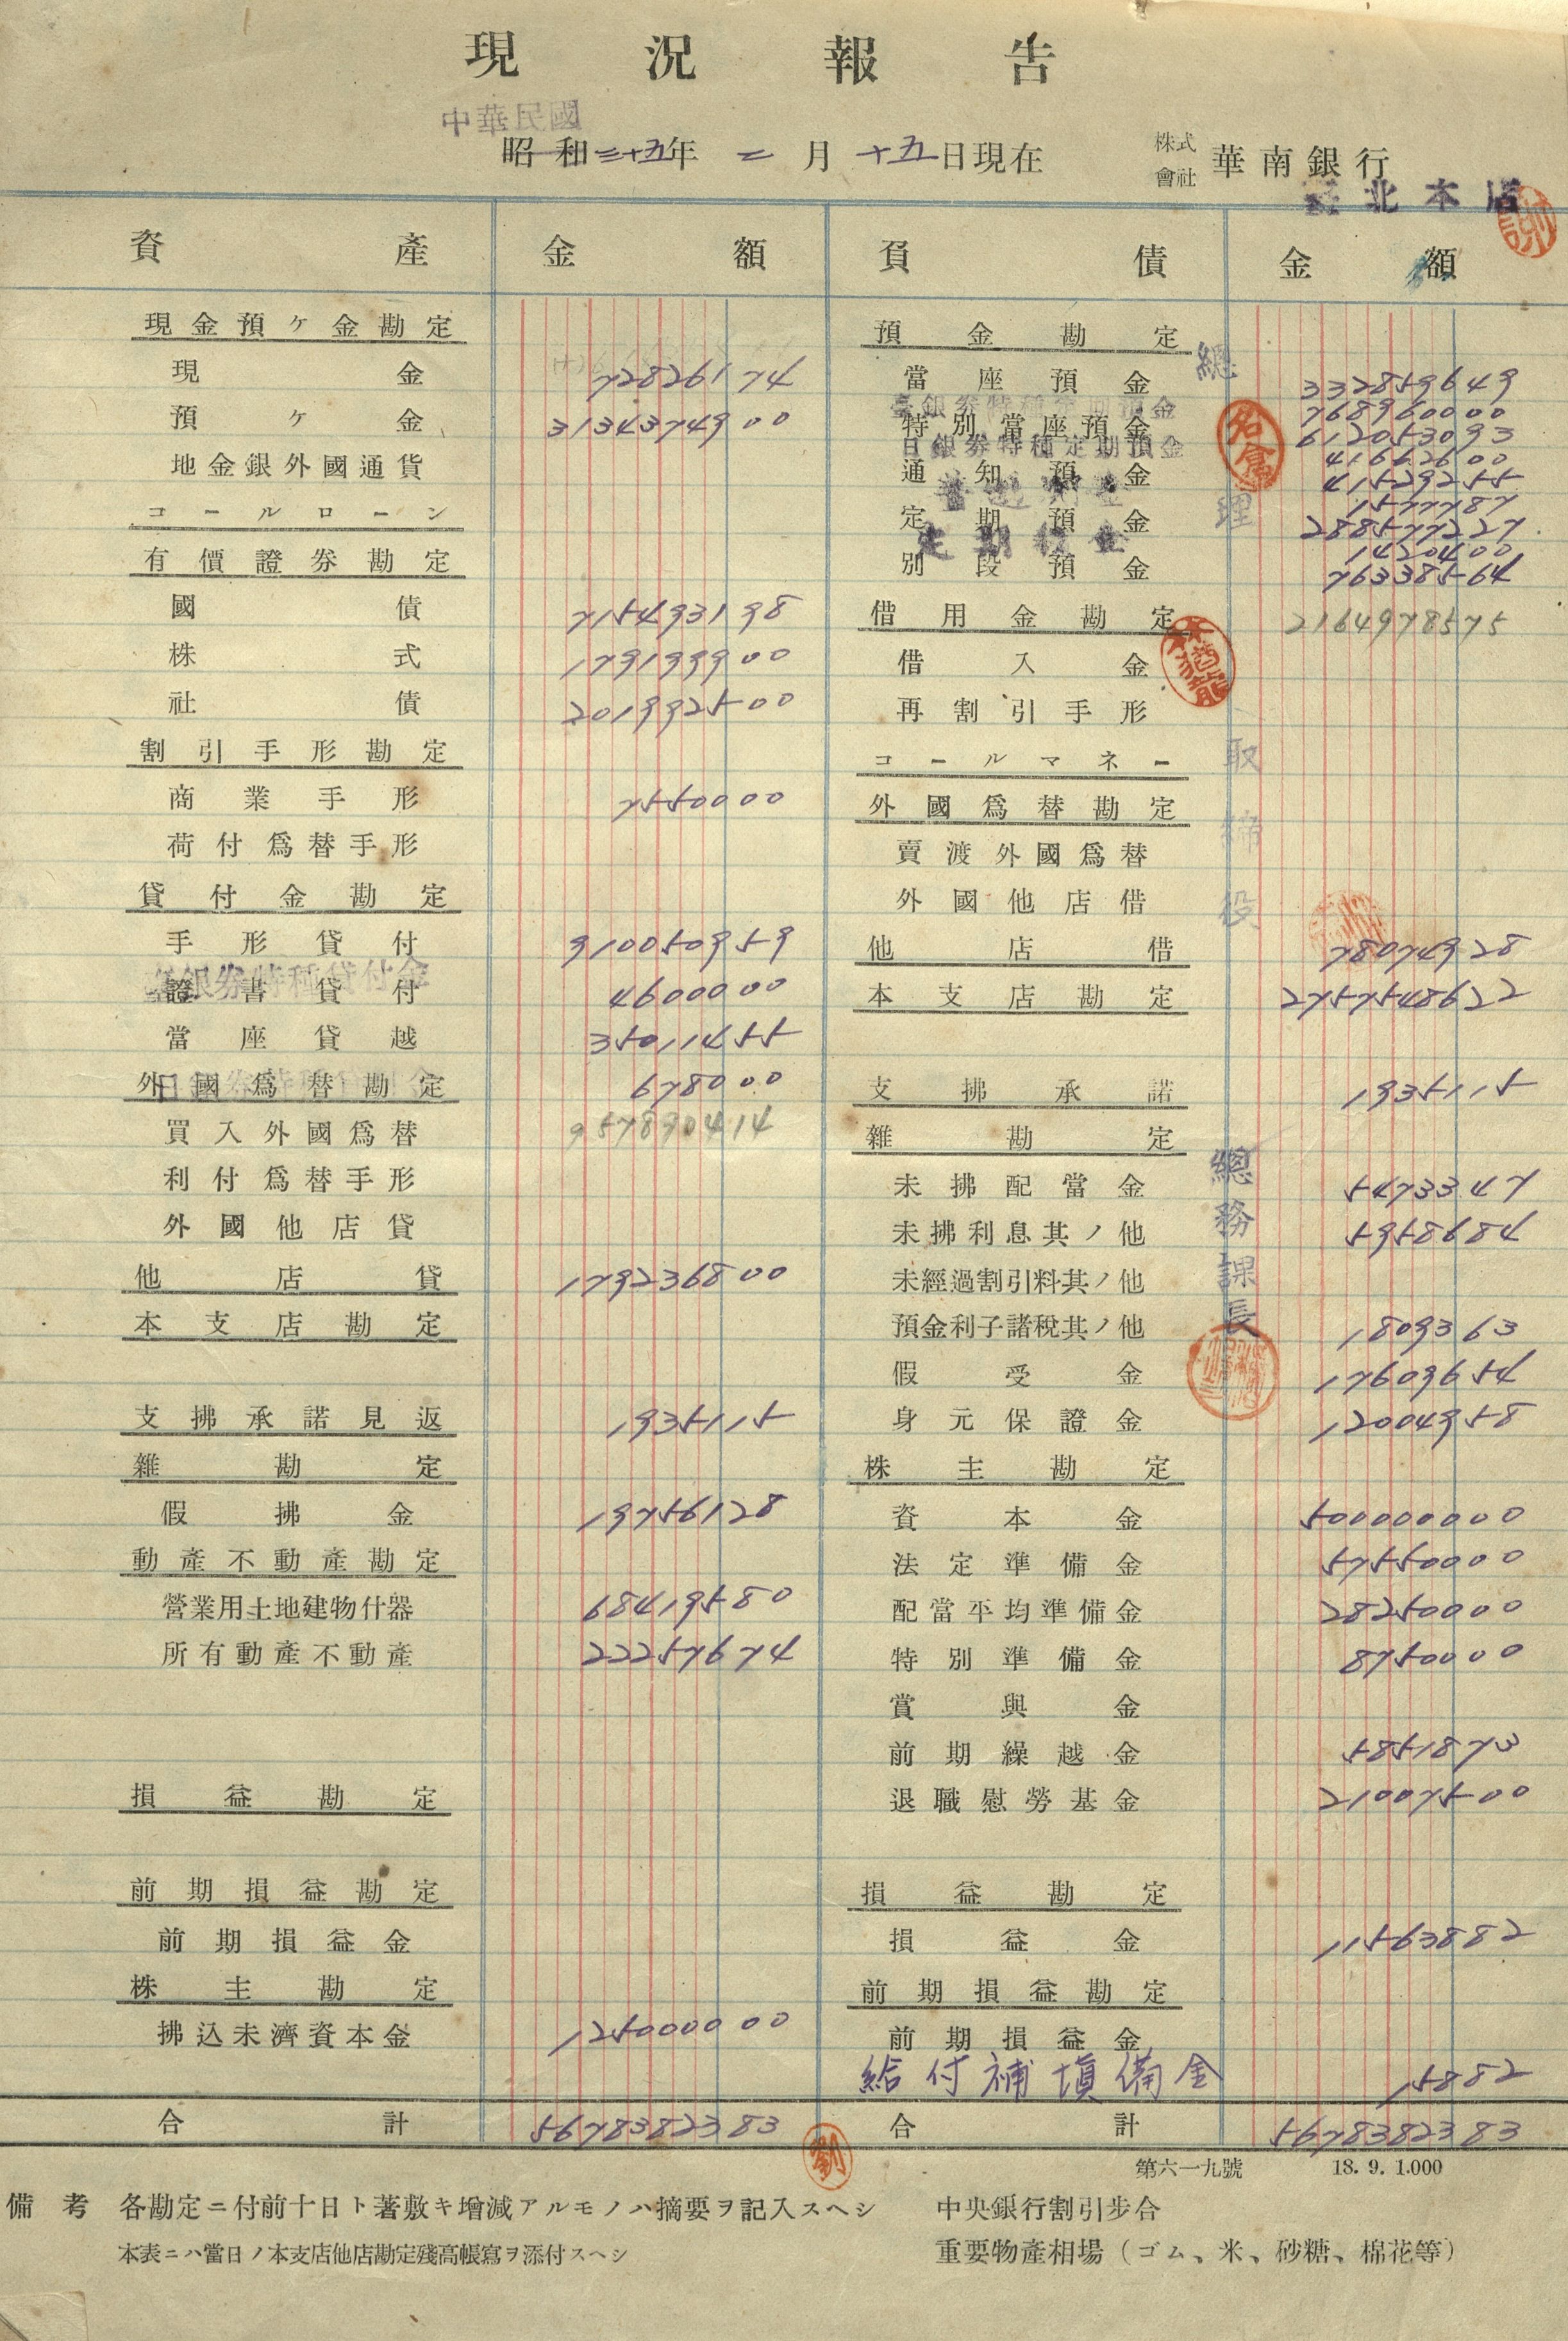 現況報告
中華民國
昭和三十五年 二月十五日現在
株式會社 華南銀行
臺北本店
資產 金額 負債 金額
現金預ケ金勘定
現金 72826174
預ケ金 3134374900
地金銀外國通貨
コールローン
有價證券勘定
國債 715493198
株式 179199900
社債 201992500
割引手形勘定
商業手形 7550000
荷付爲替手形
貸付金勘定
手形貸付 910050959
臺銀券特種貸付金
證書貸付 4600000
當座貸越 35011455
日銀券特種貸付金
外國爲替勘定 678000
買入外國爲替 957890414
利付爲替手形
外國他店貸
他店貸 179236800
本支店勘定
支拂承諾見返 1935115
雜勘定
假拂金 19756128
動產不動產勘定
營業用土地建物什器 68419580
所有動產不動產 22257674
損益勘定
前期損益勘定
前期損益金
株主勘定
拂込未濟資本金 125000000
合計 5678382383
預金勘定
當座預金 332859649
臺銀券特種定期預金 768960000
特別當座預金 612053093
日銀券特種定期預金 41662600
通知預金 41529255
1577787
定期預金 288577227
定期積金 1420400
別段預金 76338564
借用金勘定 2164978575
借入金
再割引手形
コールマネー
外國爲替勘定
賣渡外國爲替
外國他店借
他店借 78074928
本支店勘定 2757548622
支拂承諾 1935115
雜勘定
未拂配當金 5473347
未拂利息其ノ他 5958684
未經過割引料其ノ他
預金利子諸稅其ノ他 1809363
假受金 17609654
身元保證金 12004958
株主勘定
資本金 500000000
法定準備金 57550000
配當平均準備金 28250000
特別準備金 8750000
賞與金
前期繰越金 5851873
退職慰勞基金 21007500
損益勘定
損益金 11563882
前期損益勘定
前期損益金
給付補塡備金 15882
合計 5678382383
總理
取締役
總務課長
林猶龍
劉
第六一九號 18. 9. 1.000
備考 各勘定ニ付前十日ト著敷キ增減アルモノハ摘要ヲ記入スヘシ
本表ニハ當日ノ本支店他店勘定殘高帳寫ヲ添付スヘシ
中央銀行割引步合
重要物產相場(ゴム、米、砂糖、棉花等)